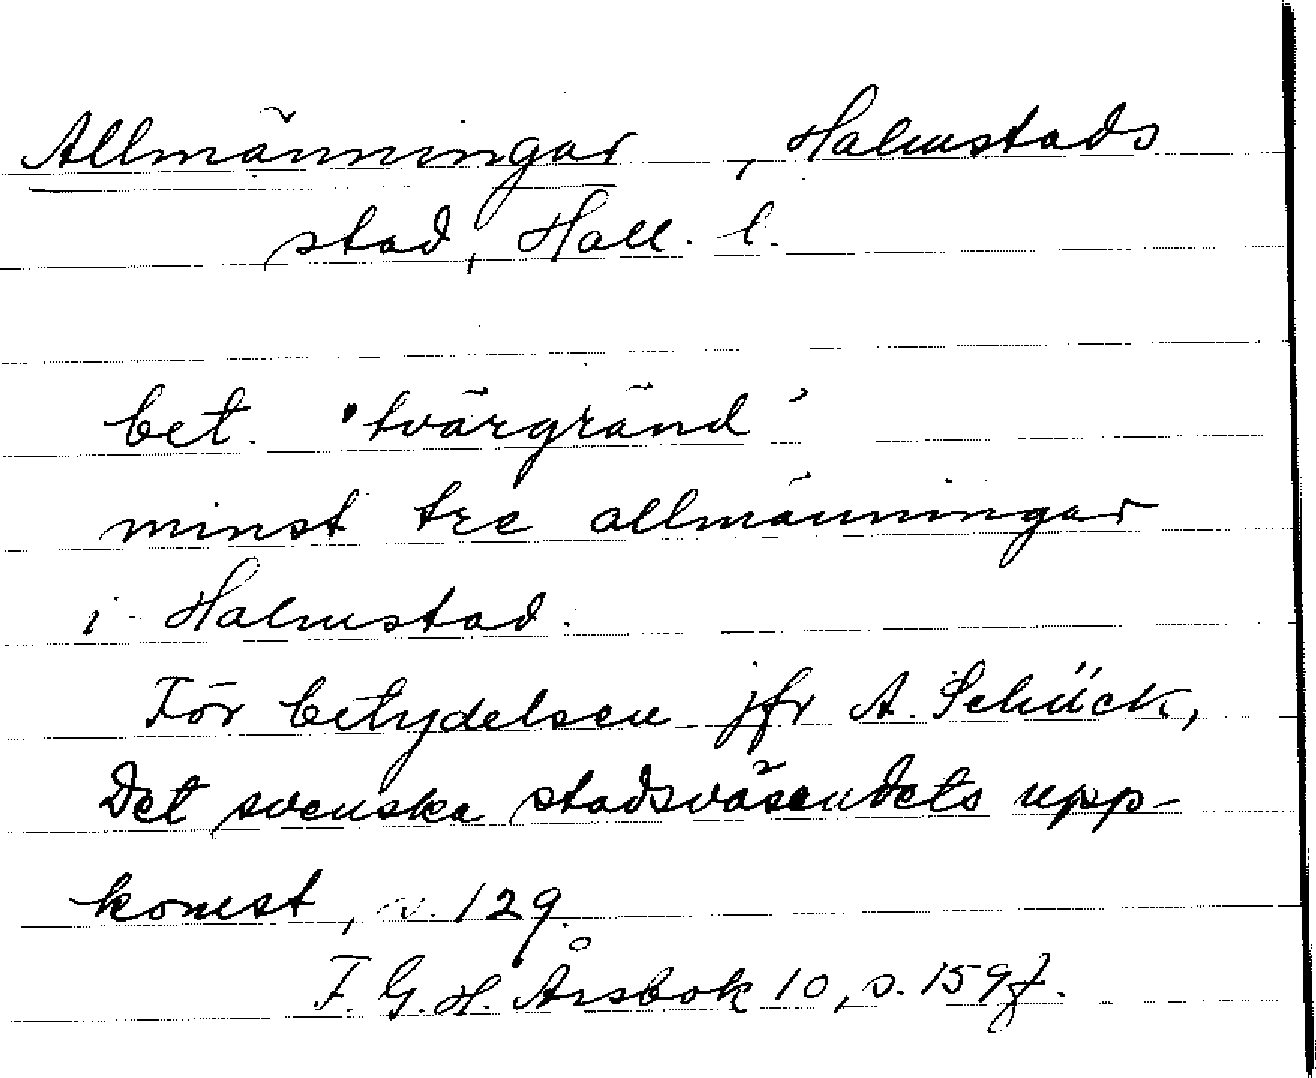 Allmänningar, Halmstads
stad, Hall. l.
bet. 'tvärgränd'
minst tre allmänningar
i Halmstad.
För betydelsen jfr A. Schück,
Det svenska stadsväsendets upp-
komst, s. 129.
F. G. H. Årsbok 10, s. 159f.